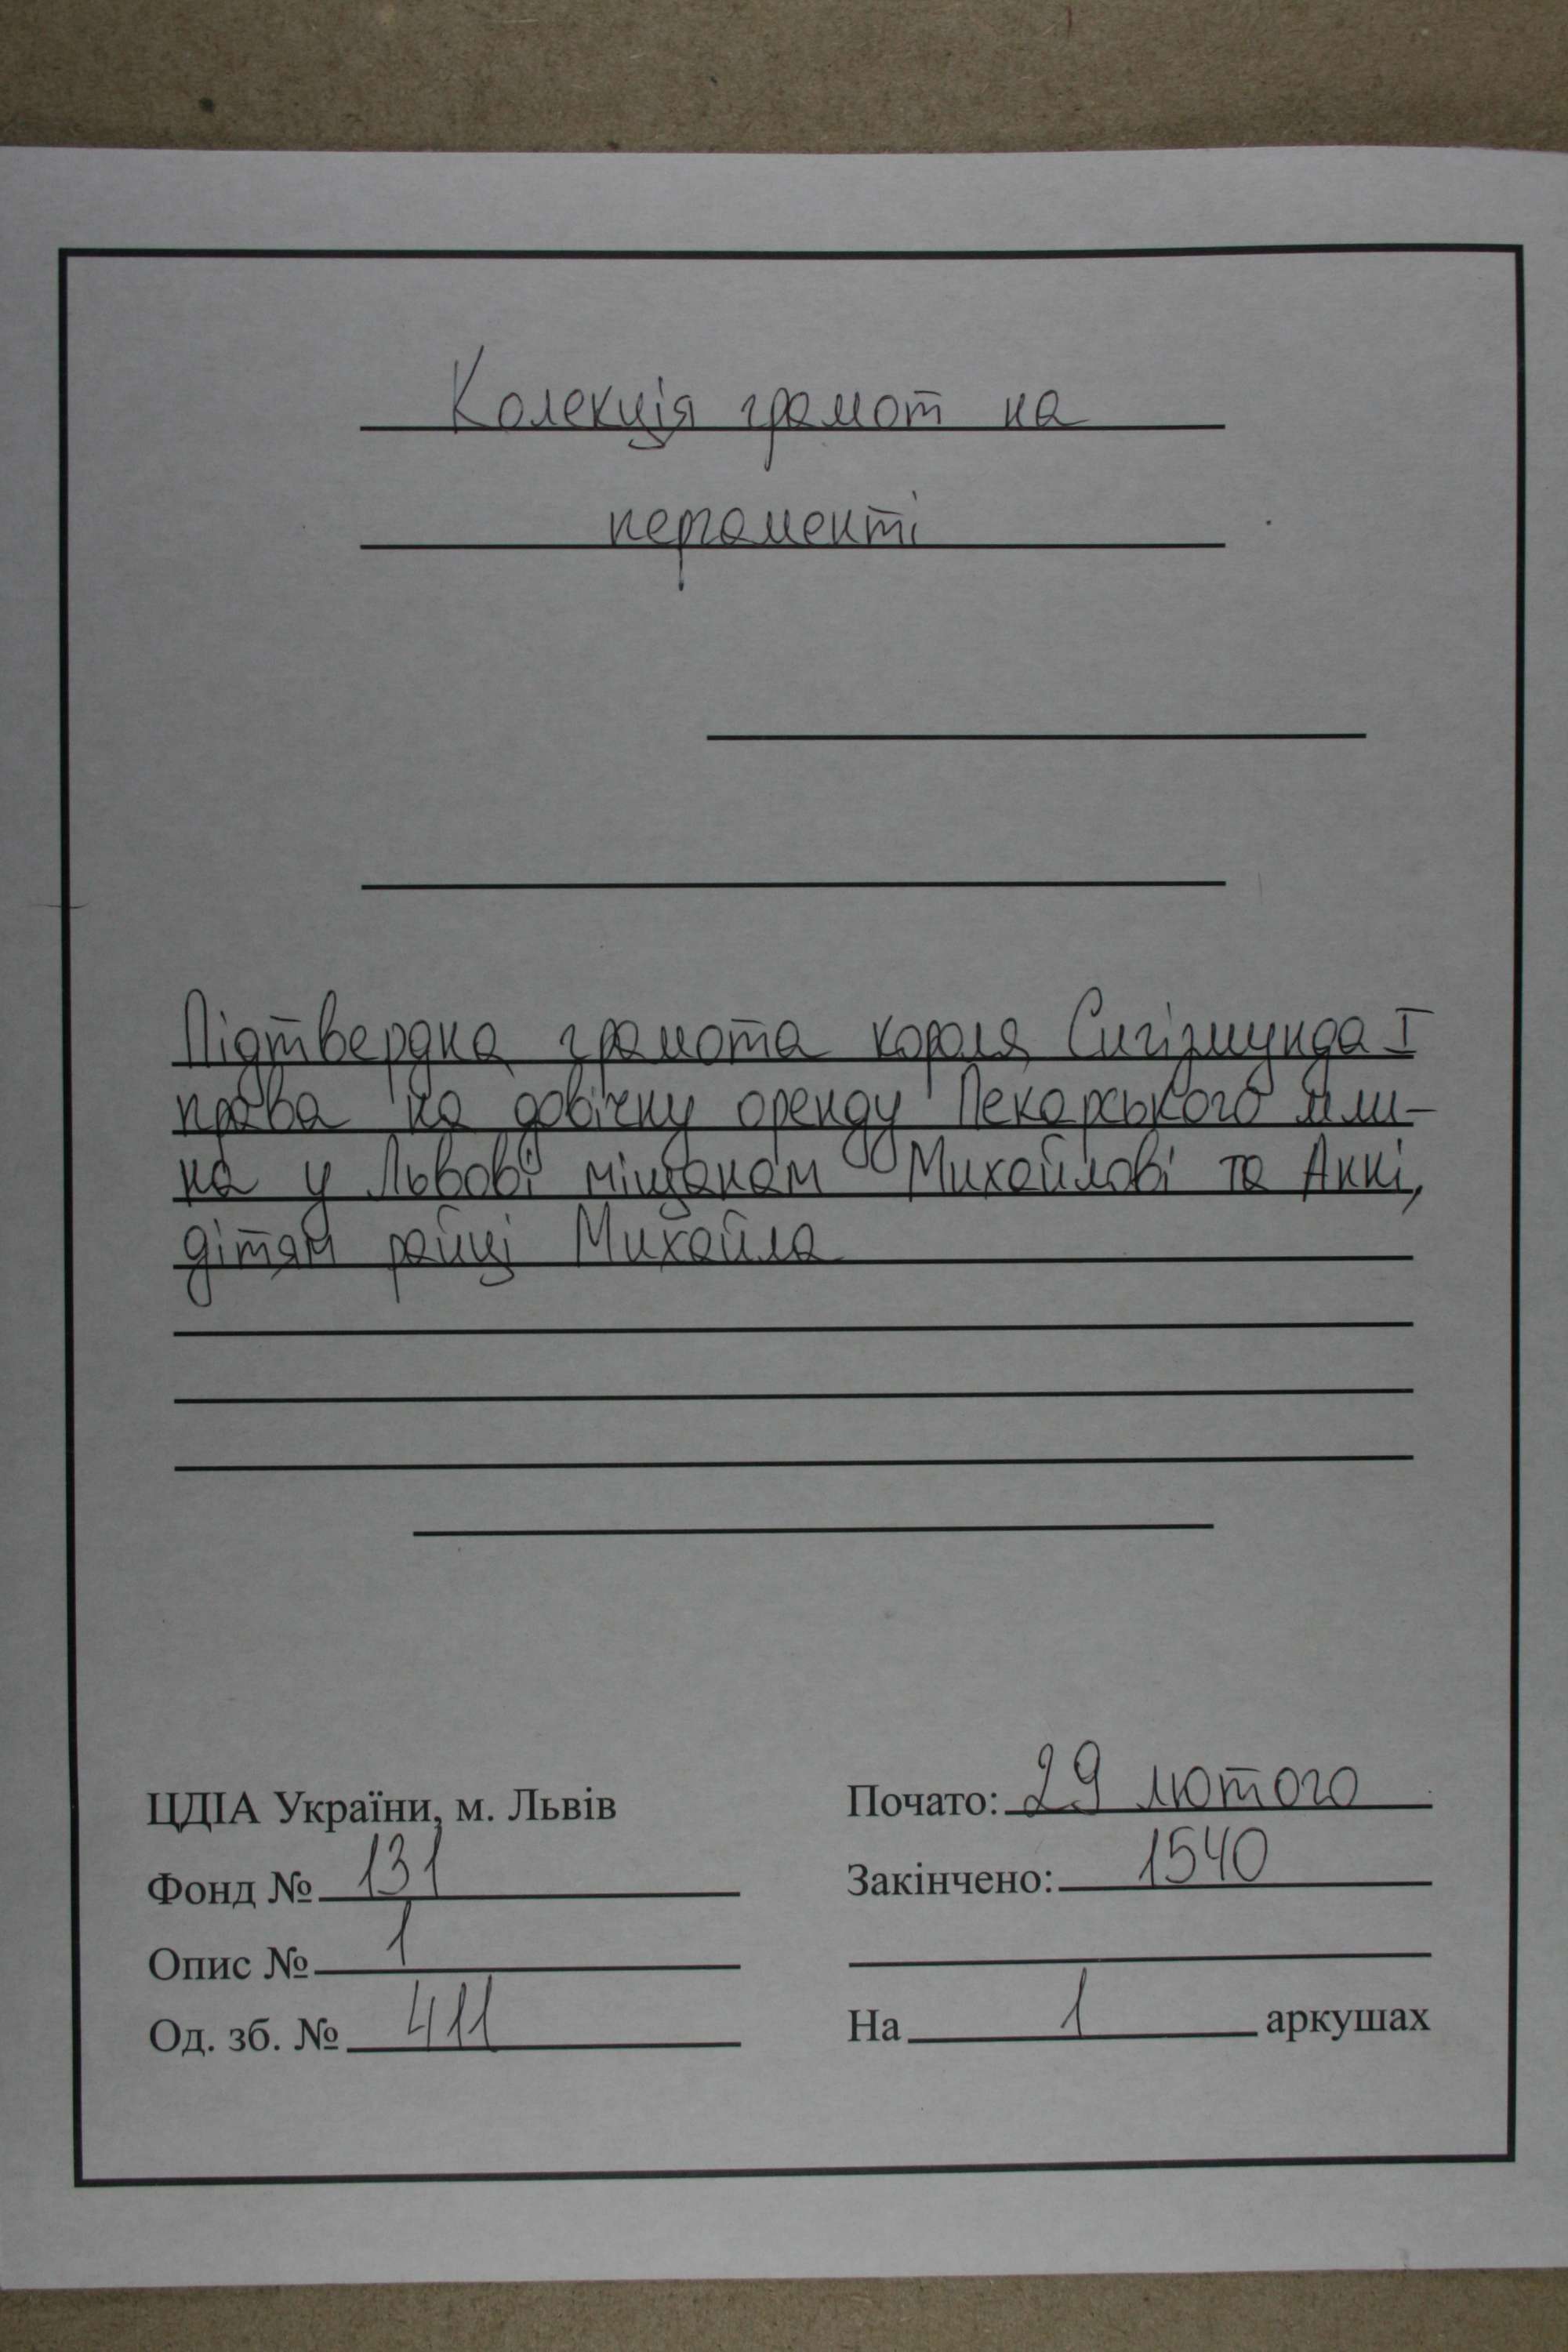 Колекція грамот на
пергаменті
Підтвердна грамота короля Сигізмунда I
права на довічну оренду Пекарського мли-
на у Львові міщанам Михайлові та Анні,
дітям райці Михайла
ЦДІА України, м. Львів
Фонд № 131
Опис № 1
Од. зб. № 411
Почато: 29 лютого
Закінчено: 1540
На 1 аркушах